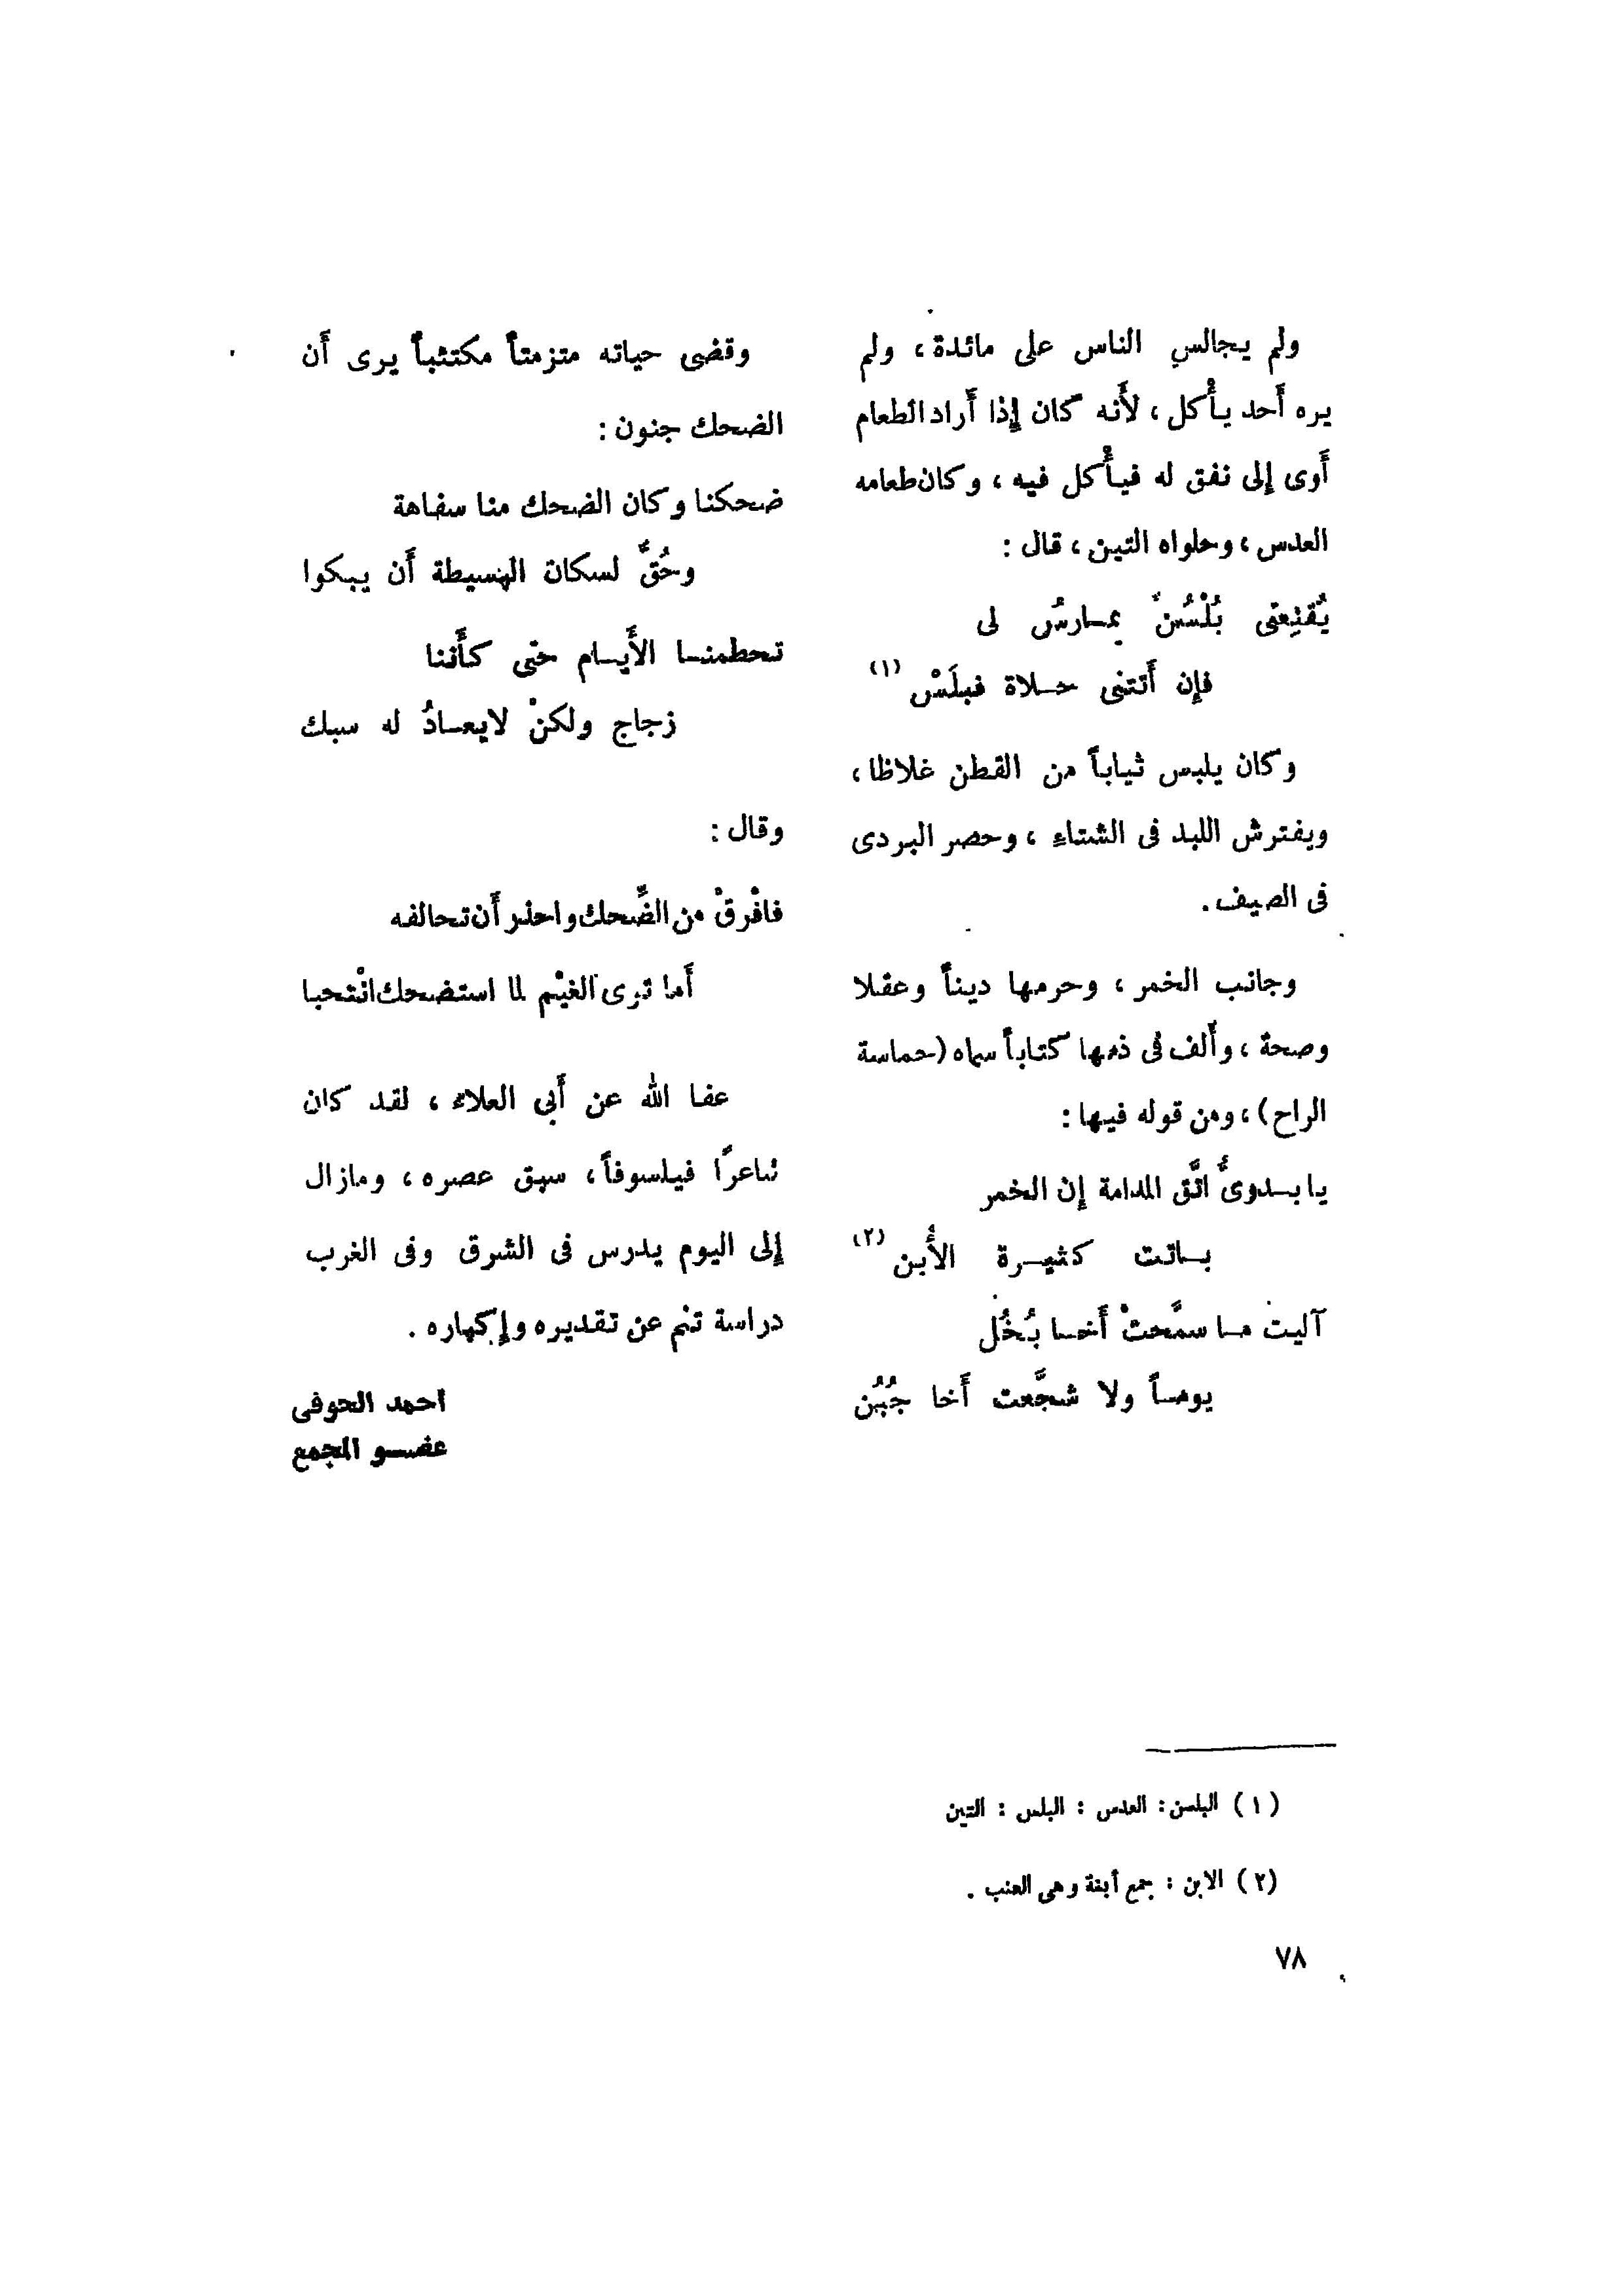 ولم يجالس الناس على مائدة ، ولم
يره أَحد يأْكل ، لأَنه كان إِذا أَراد الطعام
أَوى إِلى نفق له فيأْكل فيه ، وكان طعامه
العدس ، وحلواه التين ، قال :
يُقنِعنى بُلْسُنٌ يمـارسُ لى
فإِن أَتتنى حـلاة فبلَسْ (١)
وكان يلبس ثياباً من القطن غلاظا ،
ويفترش اللبد فى الشتاءِ ، وحصر البردى
فى الصيف .
وجانب الخمر ، وحرمها ديناً وعقلا
وصحة ، وأَلف فى ذمها كتاباً سماه (حماسة
الراح) ، ومن قوله فيها :
يا بـدوىُّ اتَّق المدامة إِن الخمر
بـاتت كثيـرة الأُبن (٢)
آليت مـا سمَّحتْ أَخـا بُخُل
يومـاً ولا شجَّعت أَخا جُبُن
وقضى حياته متزمتاً مكتئباً يرى أَن
الضحك جنون :
ضحكنا وكان الضحك منا سفاهة
وحُقَّ لسكان البسيطة أَن يبكوا
تحطمنـا الأَيـام حتى كأَننا
زجاج ولكنْ لا يعـادُ له سبك
وقال :
فافْرقْ من الضَّحك واحذر أَن تحالفه
أَما ترى الغيْم لما استضحك انْتحبا
عفا الله عن أَبى العلاء ، لقد كان
شاعرًا فيلسوفاً ، سبق عصره ، ومازال
إِلى اليوم يدرس فى الشرق وفى الغرب
دراسة تنم عن تقديره وإِكباره .
احمد الحوفى
عضـو المجمع
(١) البلسن : العدس : البلس : التين
(٢) الابن : جمع أبنة وهى العنب .
٧٨